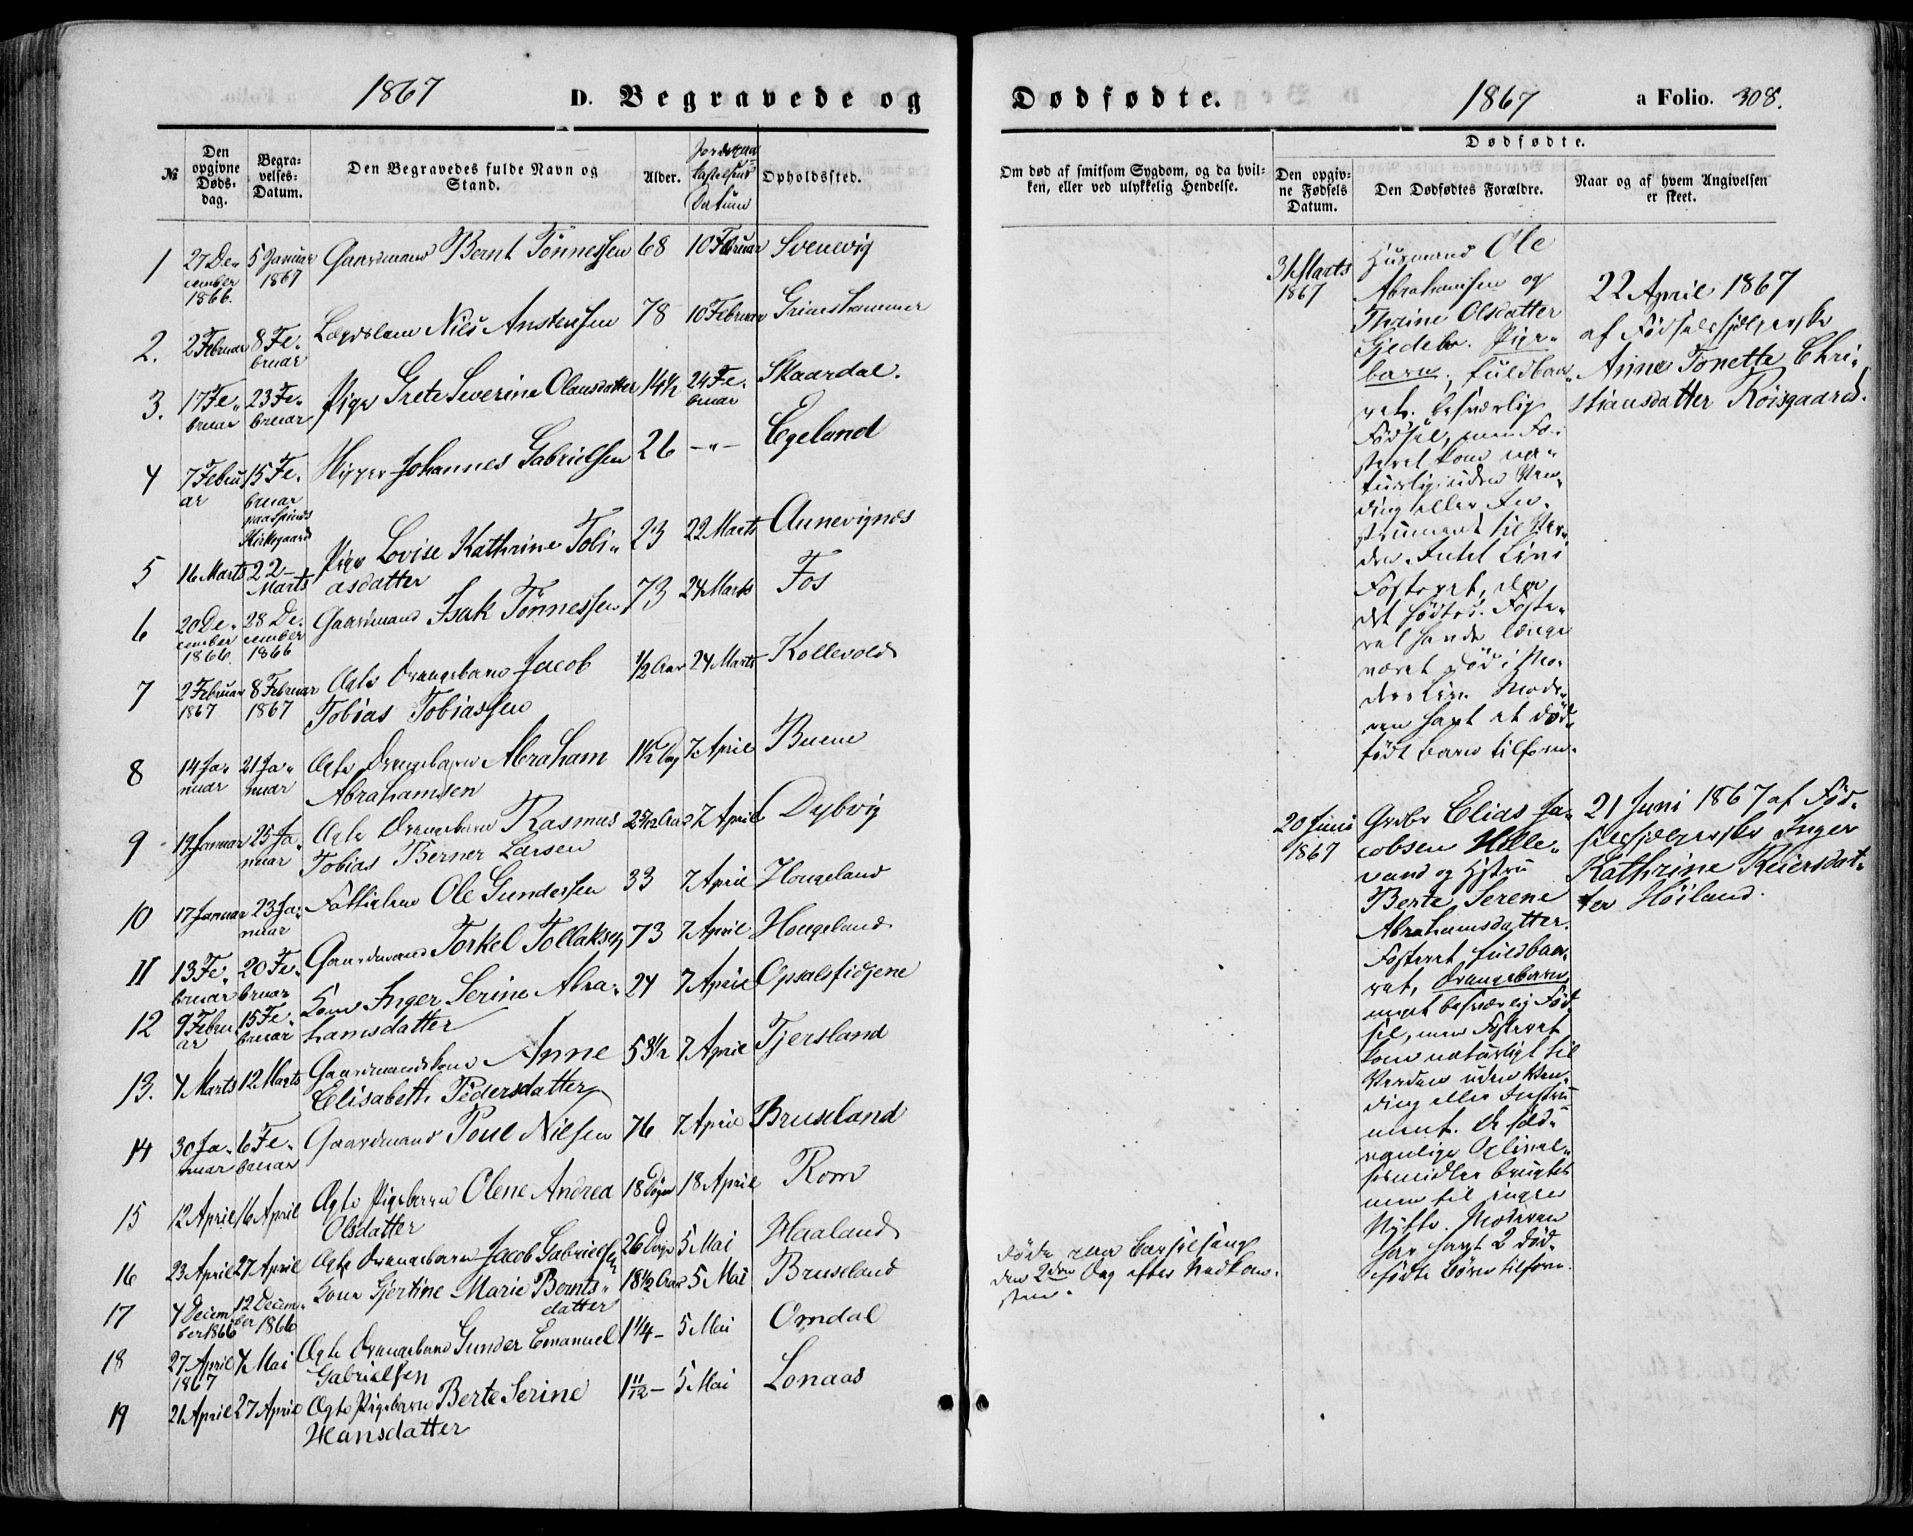 1867 D. Begravede og
№ Den opgivne Døds-dag. Begra-velses-Datum. Den Begravedes fulde Navn og Stand. Alder. Datum Opholdssted.
1 27 December 1866. 5 Januar 1867 Gaardmand Bernt Tønnessen 68 10 Februar Svenevig
2. 2 Februar 8 Februar Lægdslem Niels Anstensen 78 10 Februar Grimshammer
3. 17 Februar 23 Februar Pige Grete Severine Olausdatter 14½ 24 Februar Skaardal.
4 7 Februar 15 Februar paa Spinds Kirkegaard Johannes Gabrielsen 26 -"- Egeland
5 16 Marts 22 Marts Pige Lovise Kathrine Tobi-
asdatter 23 22 Marts Aunevignes
6 20 December 1866. 28 December 1866 Gaardmand Isak Tønnessen 73 24 Marts Fos
7 2 Februar 1867 8 Februar 1867 Ægte Drengebarn Jacob
Tobias Tobiassen ½ Aar 24 Marts Kollevold
8 14 Januar 21 Januar Ægte Drengebarn Abraham
Abrahamsen 1½ Dag 7 April Buene
9 19 Januar 25 Januar Ægte Drengebarn Rasmus
Tobias Berner Larsen Aar 7 April Dybvig
10 17 Januar 23 Januar Fattiglem Ole Gundersen 33 7 April Hougeland
11 13 Februar 20 Februar Gaardmand Torkel Tollaksen 73 7 April Hougeland
12 9 Februar 15 Februar Kone Inger Serine Abra-
hamsdatter 24 7 April Opsalsfidjene
13. 4 Marts 12 Marts Gaardmandskone Anne
Elisabeth Pedersdatter 53½ 7 April Tjersland
14 30 Januar 6 Februar Gaardmand Poul Nilsen 76 7 April Bruseland
15 12 April 16 April Ægte Pigebarn Olene Andrea
Olsdatter 18 Døgn 18 April Rom
16 23 April 27 April Ægte Drengebarn Jacob Gabrielsen 26 Døgn 5 Mai Haaland
17 4 December 1866 12 December 1866 Kone Gjertine Marie Bernts-
datter 18½ Aar 5 Mai Bruseland
18 27 April 1867 4 Mai Ægte Drengebarn Gunder Emanuel
Gabrielsen 1¼ - 5 Mai Omdal
19 21 April 27 April Ægte Pigebarn Berte Serine
Hansdatter 1 11/12 - 5 Mai Lonaas
Dødfødte. 1867 a Folio. 308.
Dødfødte.
Om død af smitsom Sygdom, og da hvil-
ken, eller ved ulykkelig Hendelse.
Den opgiv-
ne Fødsels
Datum.
Den Dødfødtes Forældre.
Naar og af hvem Angivelsen
er skeet.
31 Marts
1867
Husmand Ole
Abrahamsen og
Thrine Olsdatter
Gjedebo. Pige-
barn, fuldbaa-
ret. besværlig
Fødsel, men Fo-
steret kom na-
turlig uden Ven-
ding eller In-
strument til Ver-
den. Intet Liv i
Fosteret, da
det fødtes. Foste-
ret havde længe
været død i Mo-
ders Liv. Mode-
ren havt et død-
født Barn tilforn.
22 April 1867
af Fødselshjelperske
Anne Tonette Chri-
stiansdatter Røisgaard.
20 Juni
1867
Grdbr Elias Ja-
cobsen Helle-
vand og Hstru
Berte Serene
Abrahamsdatter.
Fosteret fuldbaa-
ret, Drengebarn,
meget besværlig Fød-
sel, men Fosteret
kom naturligt til
Verden uden Ven-
ding eller Instru-
ment. De sæd-
vanlige Oplivel-
sesmidler brugtes
men til ingen
Nytte. Moderen
har havt 2 død-
fødte Børn tilforn.
21 Juni 1867 af Fød-
selshjelperske Inger
Kathrine Reiersdat-
ter Høiland.
Døde efter Barselseng
den 2den Dag efter Nedkom-
sten.